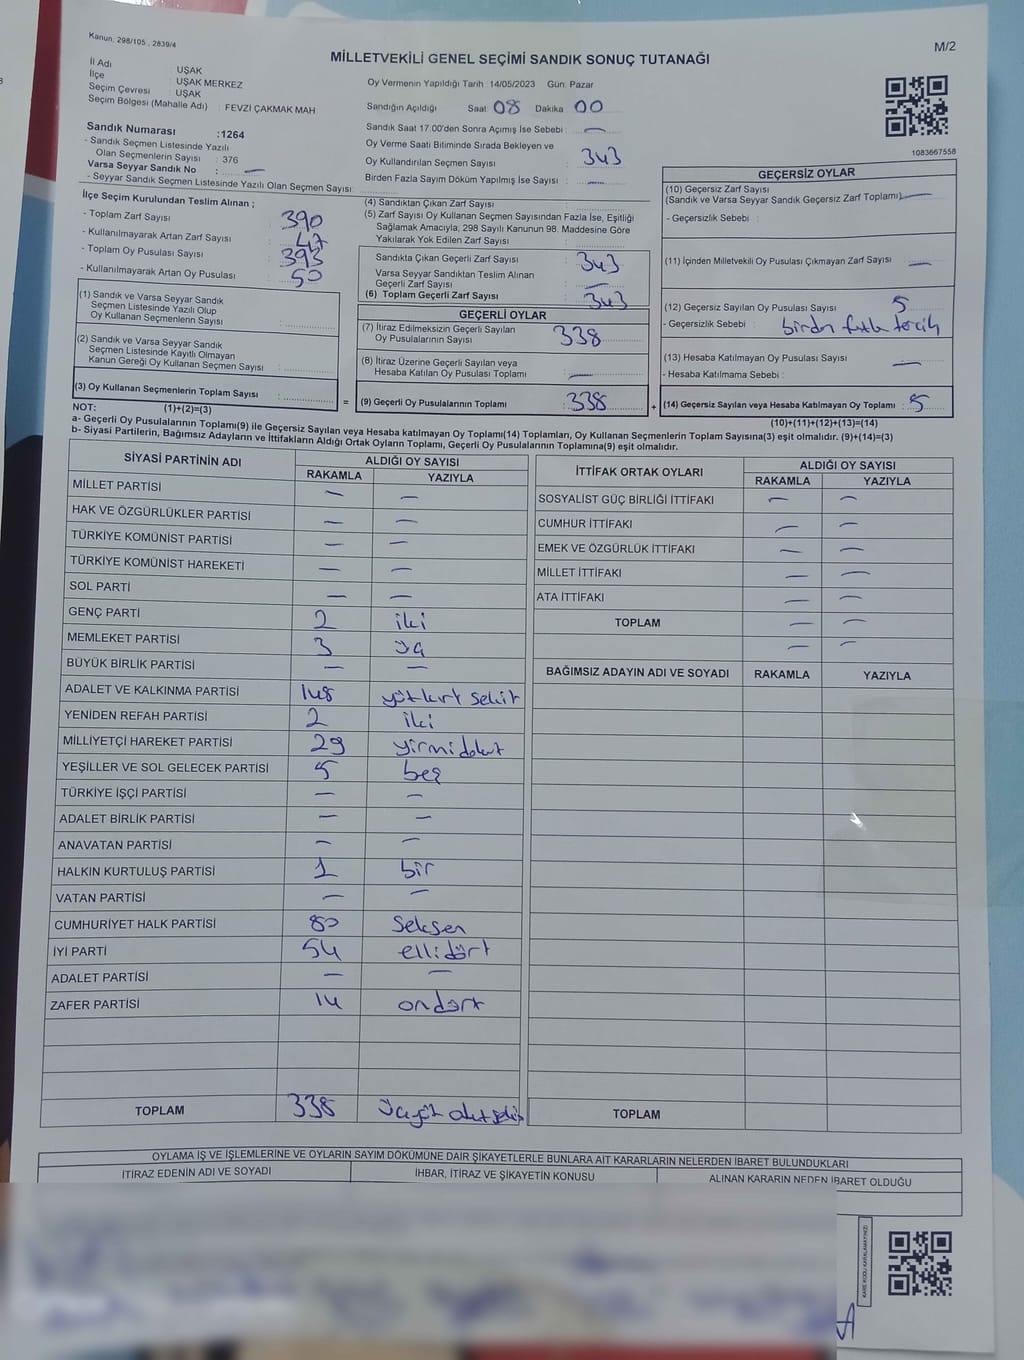 Kanun. 298/105 , 2839/4
M/2
MİLLETVEKİLİ GENEL SEÇİMİ SANDIK SONUÇ TUTANAĞI
İl Adı : UŞAK
İlçe : UŞAK MERKEZ
Seçim Çevresi : UŞAK
Seçim Bölgesi (Mahalle Adı) : FEVZİ ÇAKMAK MAH
Sandık Numarası :1264
- Sandık Seçmen Listesinde Yazılı
Olan Seçmenlerin Sayısı : 376
Varsa Seyyar Sandık No : —
- Seyyar Sandık Seçmen Listesinde Yazılı Olan Seçmen Sayısı:
Oy Vermenin Yapıldığı Tarih 14/05/2023 Gün: Pazar
Sandığın Açıldığı Saat 08 Dakika 00
Sandık Saat 17.00'den Sonra Açımış İse Sebebi : —
Oy Verme Saati Bitiminde Sırada Bekleyen ve
Oy Kullandırılan Seçmen Sayısı : 343
Birden Fazla Sayım Döküm Yapılmış İse Sayısı : —
1083667558
İlçe Seçim Kurulundan Teslim Alınan ;
- Toplam Zarf Sayısı : 390
- Kullanılmayarak Artan Zarf Sayısı : 47
- Toplam Oy Pusulası Sayısı : 393
- Kullanılmayarak Artan Oy Pusulası : 50
(1) Sandık ve Varsa Seyyar Sandık
Seçmen Listesinde Yazılı Olup
Oy Kullanan Seçmenlerin Sayısı :
(2) Sandık ve Varsa Seyyar Sandık
Seçmen Listesinde Kayıtlı Olmayan
Kanun Gereği Oy Kullanan Seçmen Sayısı :
(3) Oy Kullanan Seçmenlerin Toplam Sayısı :
(1)+(2)=(3)
(4) Sandıktan Çıkan Zarf Sayısı :
(5) Zarf Sayısı Oy Kullanan Seçmen Sayısından Fazla İse, Eşitliği
Sağlamak Amacıyla; 298 Sayılı Kanunun 98. Maddesine Göre
Yakılarak Yok Edilen Zarf Sayısı :
Sandıkta Çıkan Geçerli Zarf Sayısı : 343
Varsa Seyyar Sandıktan Teslim Alınan
Geçerli Zarf Sayısı : —
(6) Toplam Geçerli Zarf Sayısı : 343
GEÇERLİ OYLAR
(7) İtiraz Edilmeksizin Geçerli Sayılan
Oy Pusulalarının Sayısı : 338
(8) İtiraz Üzerine Geçerli Sayılan veya
Hesaba Katılan Oy Pusulası Toplamı : —
= (9) Geçerli Oy Pusulalarının Toplamı : 338
GEÇERSİZ OYLAR
(10) Geçersiz Zarf Sayısı
(Sandık ve Varsa Seyyar Sandık Geçersiz Zarf Toplamı) —
- Geçersizlik Sebebi :
(11) İçinden Milletvekili Oy Pusulası Çıkmayan Zarf Sayısı : —
(12) Geçersiz Sayılan Oy Pusulası Sayısı : 5
- Geçersizlik Sebebi : birden fazla tercih
(13) Hesaba Katılmayan Oy Pusulası Sayısı : —
- Hesaba Katılmama Sebebi :
+ (14) Geçersiz Sayılan veya Hesaba Katılmayan Oy Toplamı : 5
(10)+(11)+(12)+(13)=(14)
NOT:
a- Geçerli Oy Pusulalarının Toplamı(9) ile Geçersiz Sayılan veya Hesaba katılmayan Oy Toplamı(14) Toplamları, Oy Kullanan Seçmenlerin Toplam Sayısına(3) eşit olmalıdır. (9)+(14)=(3)
b- Siyasi Partilerin, Bağımsız Adayların ve İttifakların Aldığı Ortak Oyların Toplamı, Geçerli Oy Pusulalarının Toplamına(9) eşit olmalıdır.
SİYASİ PARTİNİN ADI ALDIĞI OY SAYISI
RAKAMLA YAZIYLA
MİLLET PARTİSİ — —
HAK VE ÖZGÜRLÜKLER PARTİSİ — —
TÜRKİYE KOMÜNİST PARTİSİ — —
TÜRKİYE KOMÜNİST HAREKETİ — —
SOL PARTİ — —
GENÇ PARTİ 2 iki
MEMLEKET PARTİSİ 3 üç
BÜYÜK BİRLİK PARTİSİ — —
ADALET VE KALKINMA PARTİSİ 148 yüzkırk sekiz
YENİDEN REFAH PARTİSİ 2 iki
MİLLİYETÇİ HAREKET PARTİSİ 29 yirmidokuz
YEŞİLLER VE SOL GELECEK PARTİSİ 5 beş
TÜRKİYE İŞÇİ PARTİSİ — —
ADALET BİRLİK PARTİSİ — —
ANAVATAN PARTİSİ — —
HALKIN KURTULUŞ PARTİSİ 1 bir
VATAN PARTİSİ — —
CUMHURİYET HALK PARTİSİ 80 Seksen
İYİ PARTİ 54 ellidört
ADALET PARTİSİ — —
ZAFER PARTİSİ 14 ondört
TOPLAM 338 üçyüz otuzsekiz
İTTİFAK ORTAK OYLARI ALDIĞI OY SAYISI
RAKAMLA YAZIYLA
SOSYALİST GÜÇ BİRLİĞİ İTTİFAKI — —
CUMHUR İTTİFAKI — —
EMEK VE ÖZGÜRLÜK İTTİFAKI — —
MİLLET İTTİFAKI — —
ATA İTTİFAKI — —
TOPLAM — —
— —
BAĞIMSIZ ADAYIN ADI VE SOYADI RAKAMLA YAZIYLA
TOPLAM
OYLAMA İŞ VE İŞLEMLERİNE VE OYLARIN SAYIM DÖKÜMÜNE DAİR ŞİKAYETLERLE BUNLARA AİT KARARLARIN NELERDEN İBARET BULUNDUKLARI
İTİRAZ EDENİN ADI VE SOYADI İHBAR, İTİRAZ VE ŞİKAYETİN KONUSU ALINAN KARARIN NEDEN İBARET OLDUĞU
KARE KODU KARALAMAYINIZ!